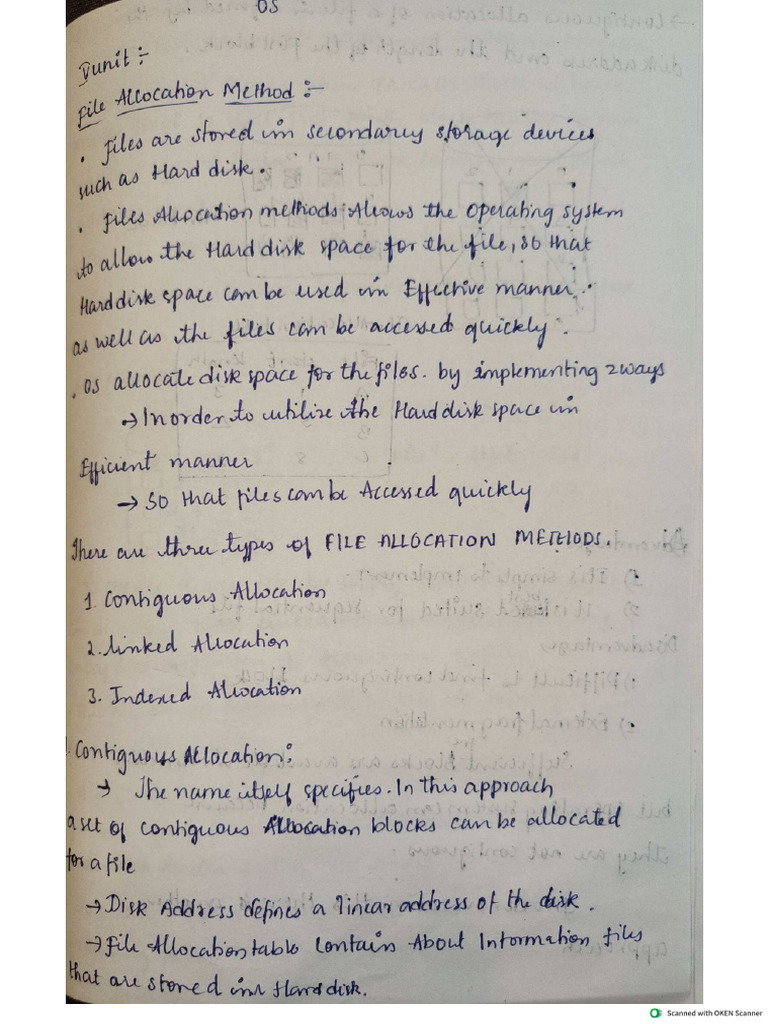 OS
V unit :-
File Allocation Method :-
. Files are stored in secondary storage devices
such as Hard disk.
. Files Allocation methods Allows the Operating system
to allow the Hard disk space for the file, so that
Hard disk space can be used in Effective manner.
as well as the files can be accessed quickly.
. OS allocate disk space for the files. by implementing 2 ways
→ In order to utilize the Hard disk space in
Efficient manner
→ so that files can be Accessed quickly
There are three types of FILE ALLOCATION METHODS.
1. Contiguous Allocation
2. Linked Allocation
3. Indexed Allocation
1. Contiguous Allocation:
→ The name itself specifies. In this approach
a set of contiguous Allocation blocks can be allocated
for a file
→ Disk Address defines a linear address of the disk.
→ File Allocation table Contain About Information files
that are stored in Hard disk.
Scanned with OKEN Scanner